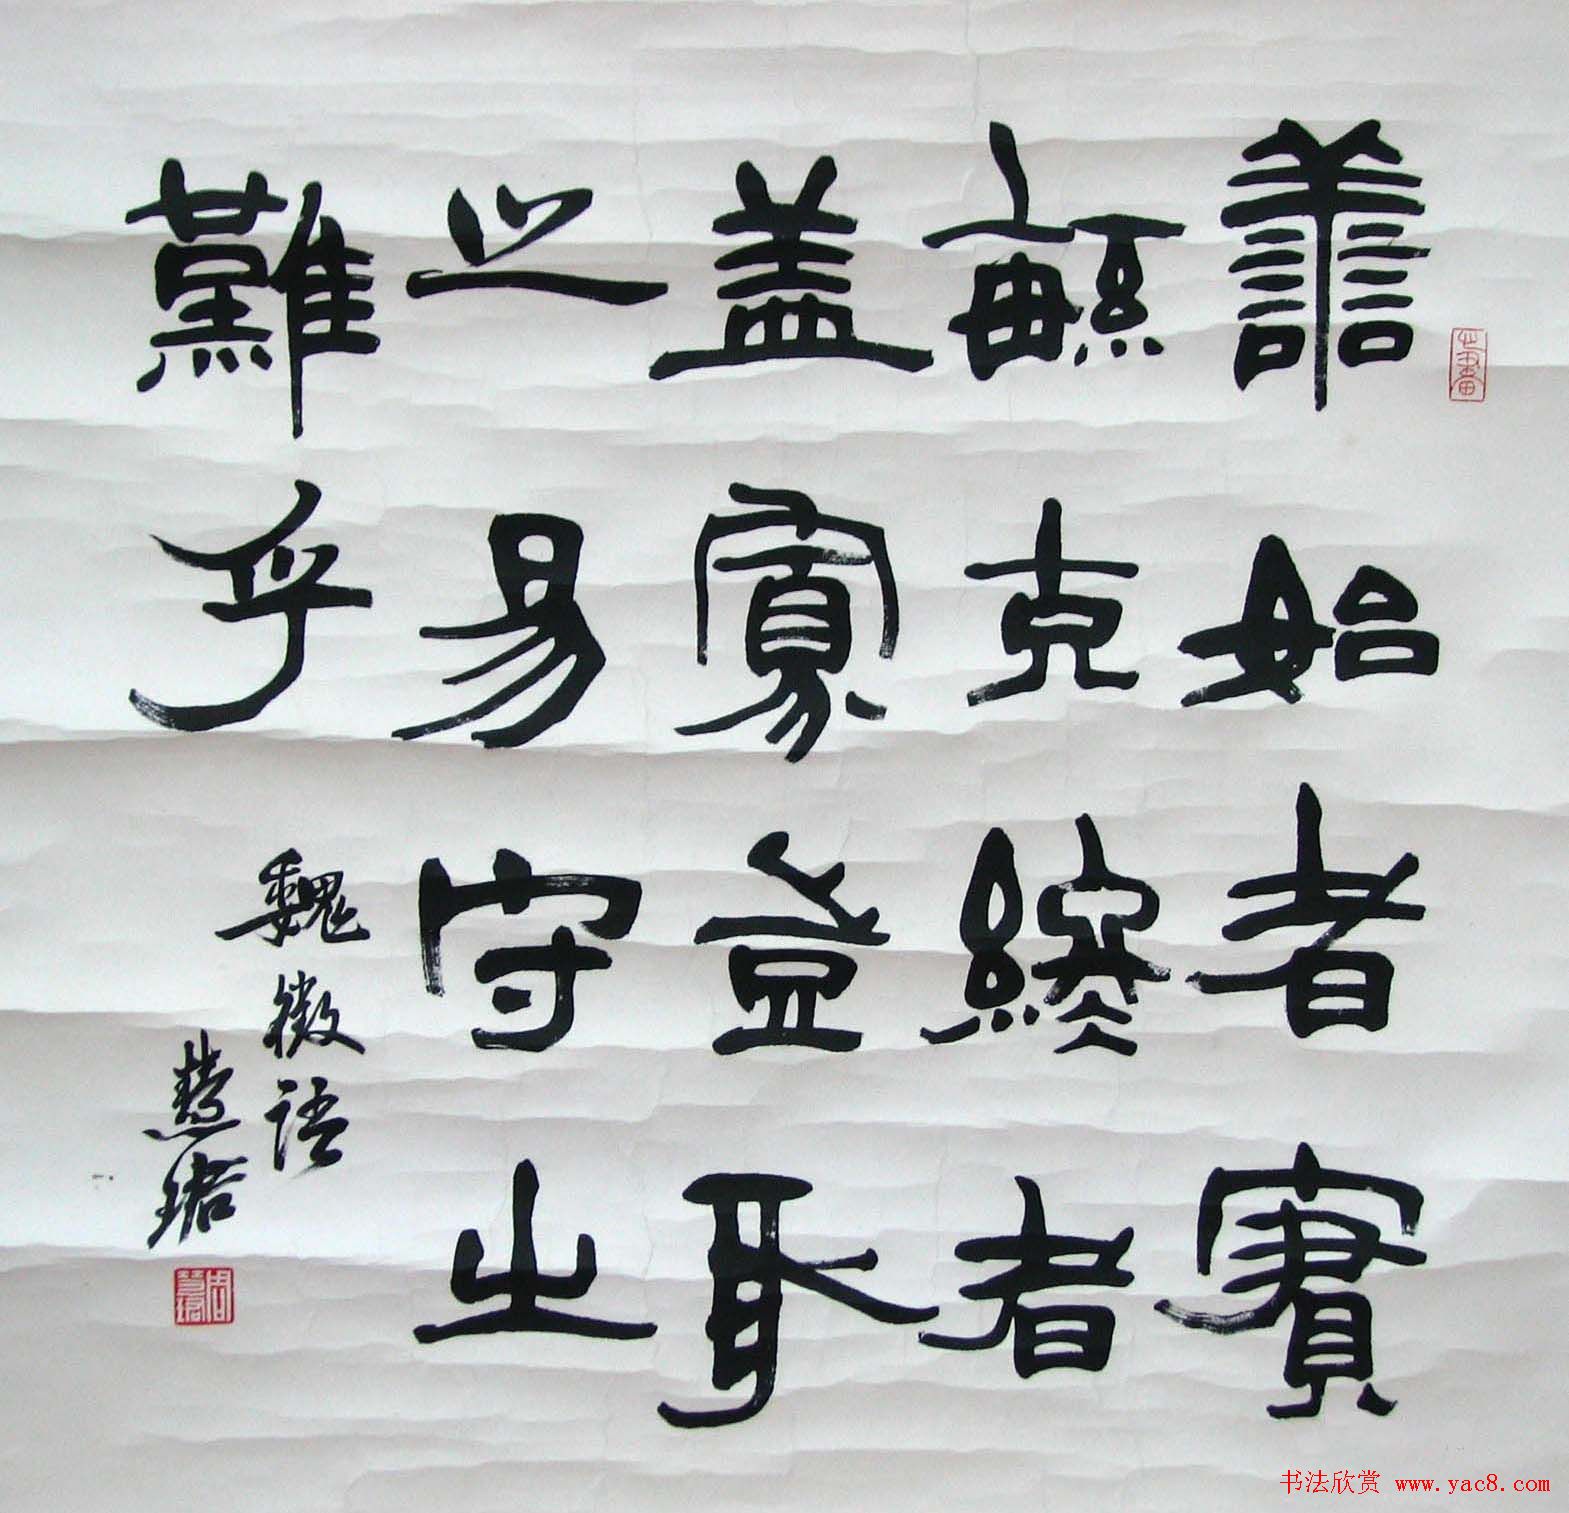 善始者實
繁克終者
盖寡豈取
之易守之
難乎
魏徵語
慧珺
周慧珺
书法欣赏 www.yac8.com